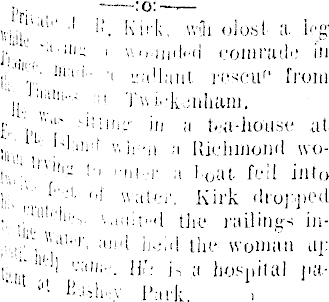 —:o:—
Private J. R. Kirk, wh olost a leg
while saving a wounded comrade in
France, made a gallant rescue from
the Thames at Twickenham.
He was sitting in a tea-house at
Pie Island when a Richmond wo-
man trying to enter a boat fell into
twelve feet of water. Kirk dropped
his crutches, vaulted the railings in-
to the water, and held the woman up
until help came. He is a hospital pa-
tient at Bushey Park.